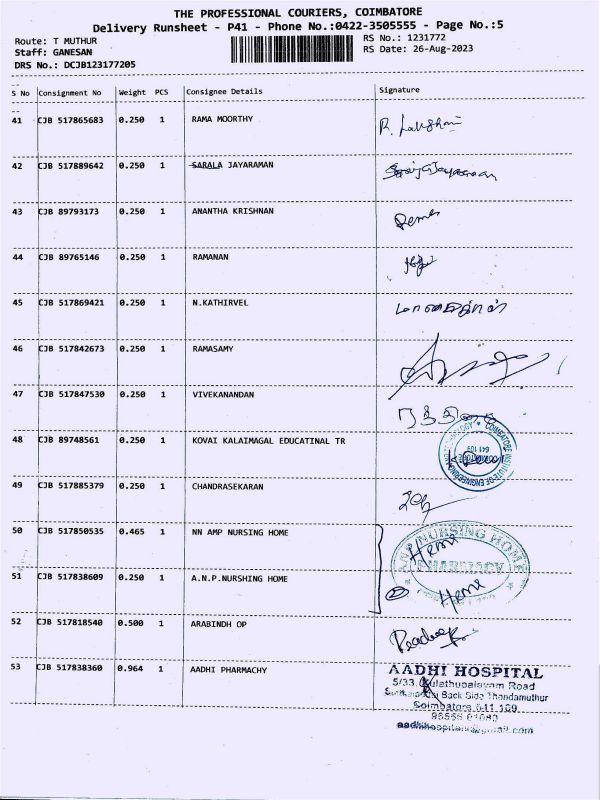 THE PROFESSIONAL COURIERS, COIMBATORE
Delivery Runsheet - P41 - Phone No.:0422-3505555 - Page No.:5
Route: T MUTHUR RS No.: 1231772
Staff: GANESAN RS Date: 26-Aug-2023
DRS No.: DCJB123177205
S No Consignment No Weight PCS Consignee Details Signature
41 CJB 517865683 0.250 1 RAMA MOORTHY R. Lakshmi
42 CJB 517889642 0.250 1 SARALA JAYARAMAN
43 CJB 89793173 0.250 1 ANANTHA KRISHNAN
44 CJB 89765146 0.250 1 RAMANAN
45 CJB 517869421 0.250 1 N.KATHIRVEL
46 CJB 517842673 0.250 1 RAMASAMY
47 CJB 517847530 0.250 1 VIVEKANANDAN
48 CJB 89748561 0.250 1 KOVAI KALAIMAGAL EDUCATINAL TR
COIMBATORE INSTITUTE OF ENGINEERING 641 109
49 CJB 517885379 0.250 1 CHANDRASEKARAN
50 CJB 517850535 0.465 1 NN AMP NURSING HOME Hemi
NURSING HOME
PHARMACY
51 CJB 517838609 0.250 1 A.N.P.NURSHING HOME Hemi
52 CJB 517818540 0.500 1 ARABINDH OP
53 CJB 517838360 0.964 1 AADHI PHARMACHY AADHI HOSPITAL
5/33, Kulathupalayam Road
Back Side Thondamuthur
Coimbatore 641 109